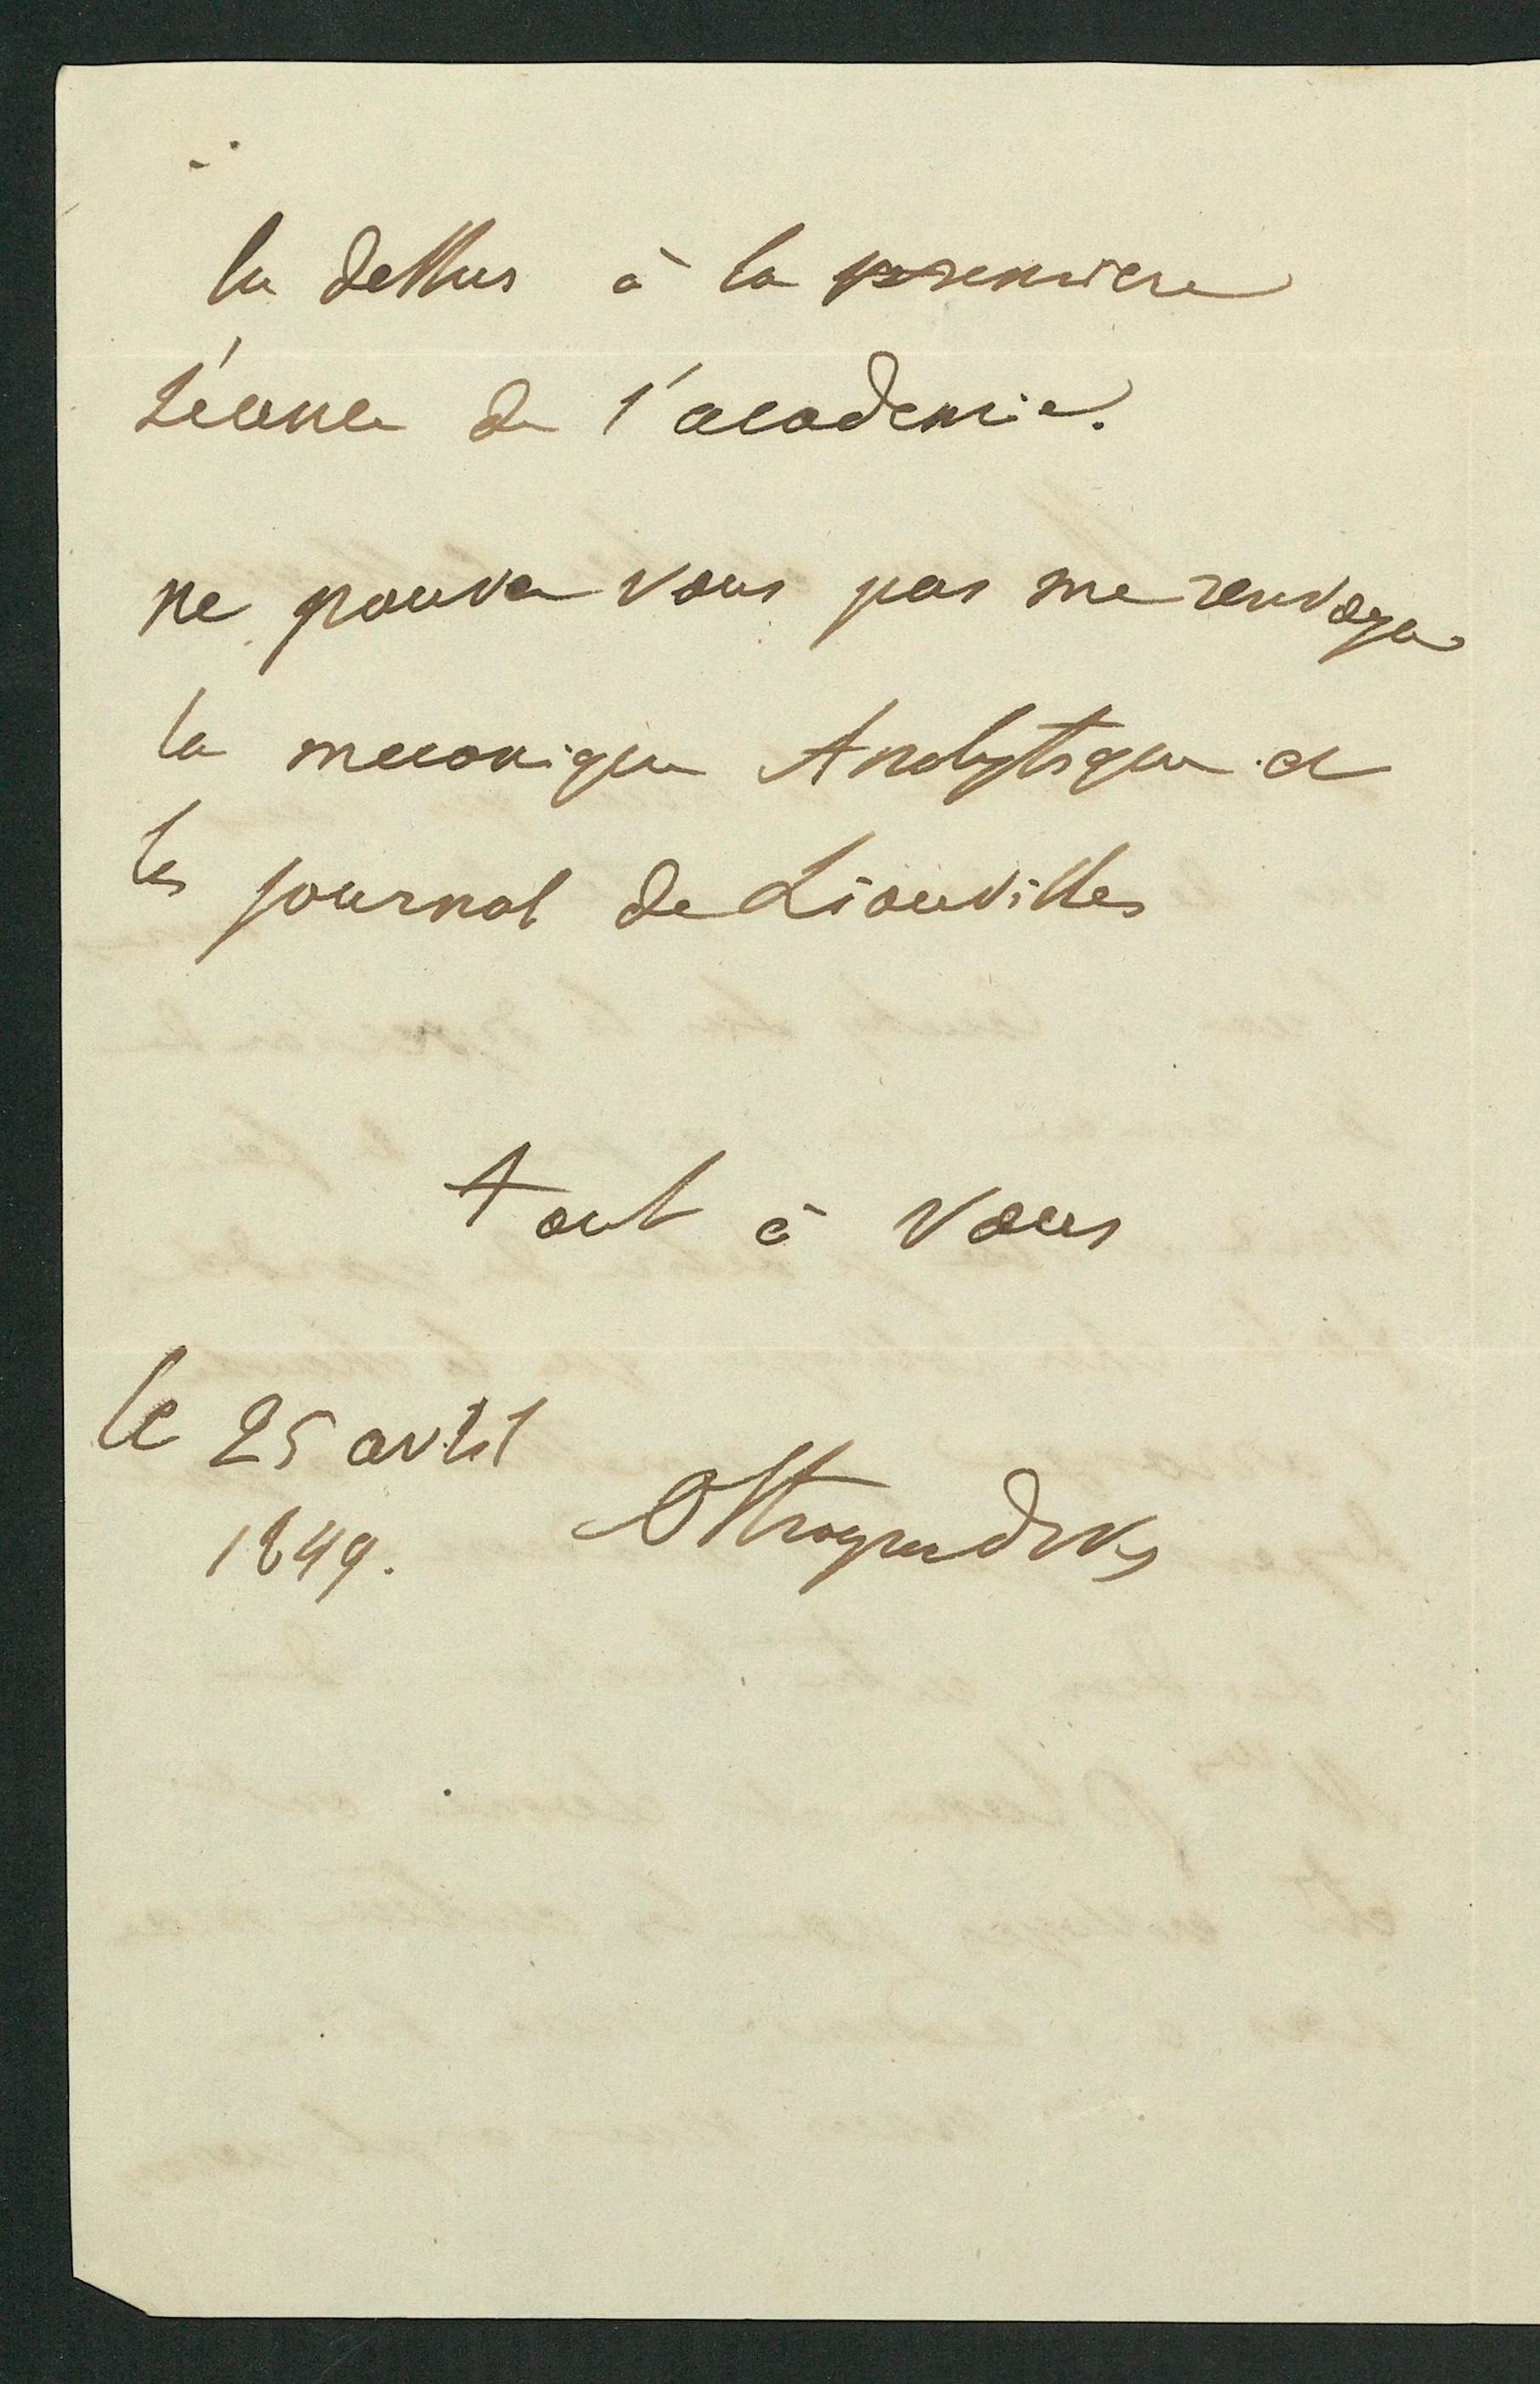 la dessus à la premiere
séance de l'academie.
ne pouvez vous pas me renvoyer
la mecanique Analytique et
les journal de Liouvilles
tout à vous
le 25 avril
1849.
Ostrogradsky